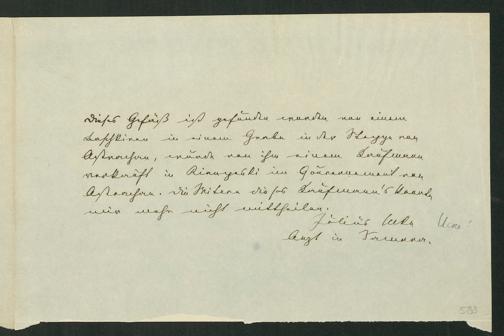 Dieses Gefäß ist gefunden worden von einem
Baschkiren in einem Grabe in der Steppe von
Astrachan, wurde von ihm einem Kaufmann
verkauft in im Gouvernement von
Astrachan. Die Witwe dieses Kaufmann's konnte
mir mehr nicht mittheilen.
Julius
Arzt in Samara.